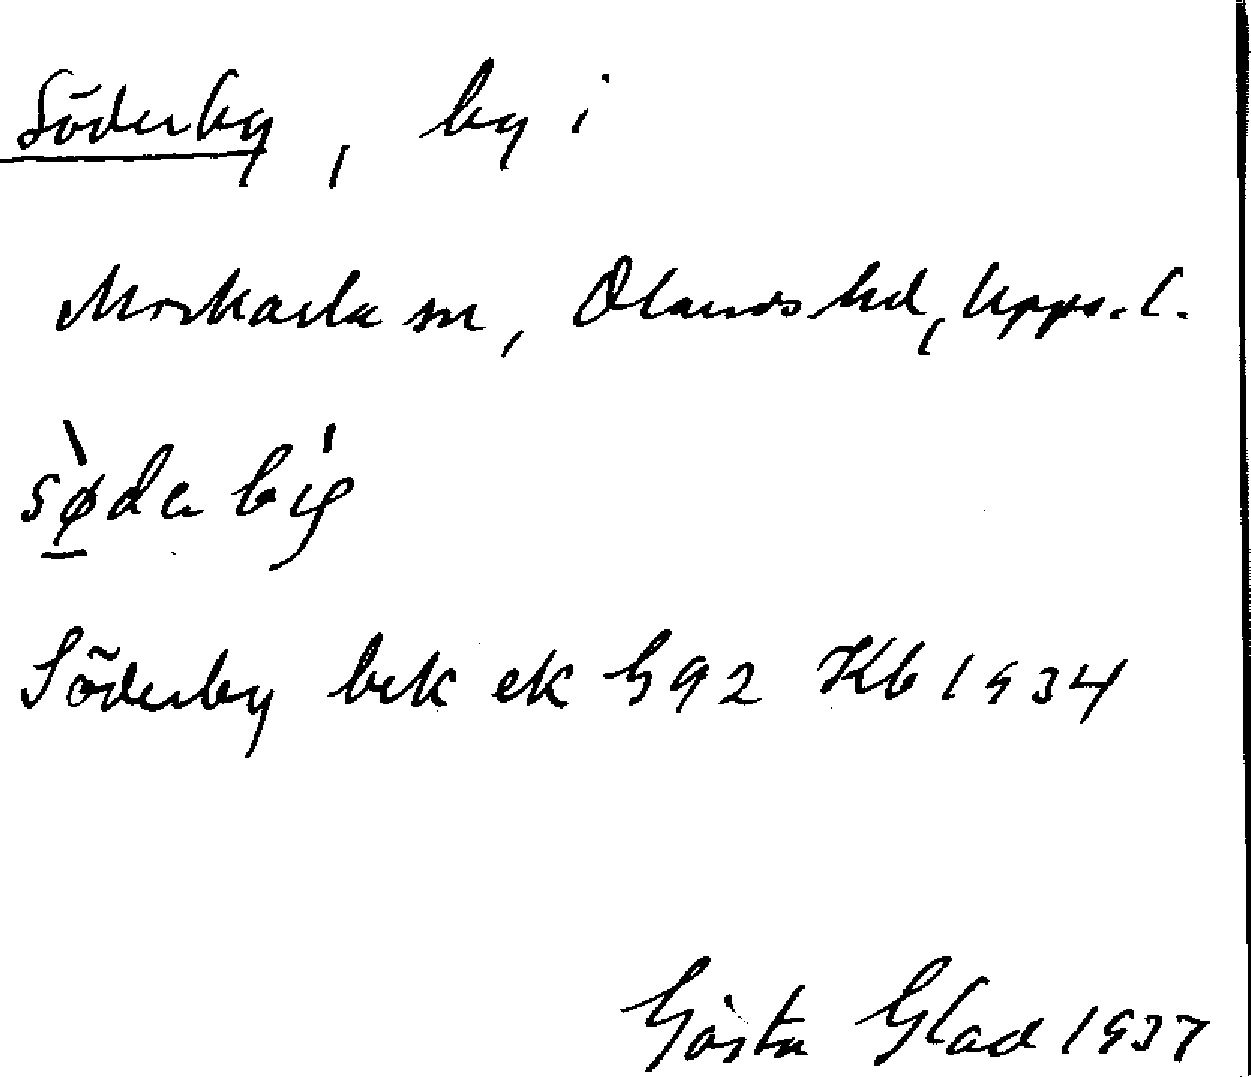 Söderby, by i
Morkarla sn, Olands hd, Upps. l.
Söderby bek ek 592 Kb 1934
Gösta Glad 1937